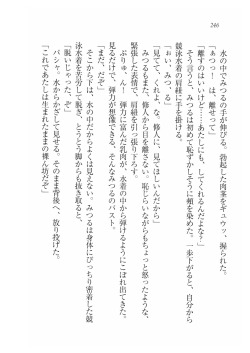 246
　水の中でみつるの手が伸びる。勃起した肉茎をギュウッ、握られた。
「あっつっ！　は、離せって」
「離すのはいいけど……あたしにも、してくれるんだよな？」
　そう言うと、みつるは初めて恥ずかしそうに頬を染めた。一歩下がると、自分から
競泳水着の肩紐に手を掛ける。
「おい、みつ、る」
「見ててくれよな。修人に、見てほしいんだから」
　みつるもまた、修人から目を離さない。恥じらいながらもちょっと怒ったような、
緊張した表情で、肩紐を引っ張り下ろす。
　ぷりゅ、ん！　弾力に富んだ乳肉が、水着の中から弾けるようにこぼれ出てきた。
見るだけで、弾力が想像できる。そんなみつるのバスト。
「まだ、だぞ」
　そこから下は、水の中だからよくは見えない。みつるは身体にぴっちり密着した競
泳水着を苦労して脱ぎ、とうとう脚からも抜き取る。
「脱いじゃった、ぞ」
　バシャ。水からかざして見せる。そのまま背後へ、放り投げた。
「これであたしは生まれたままの裸ん坊だぞ」